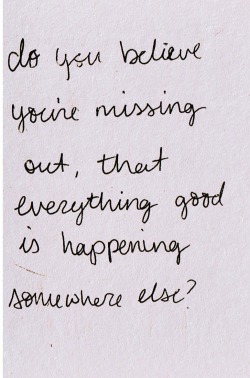 do you believe
you're missing
out, that
everything good
is happening
somewhere else?